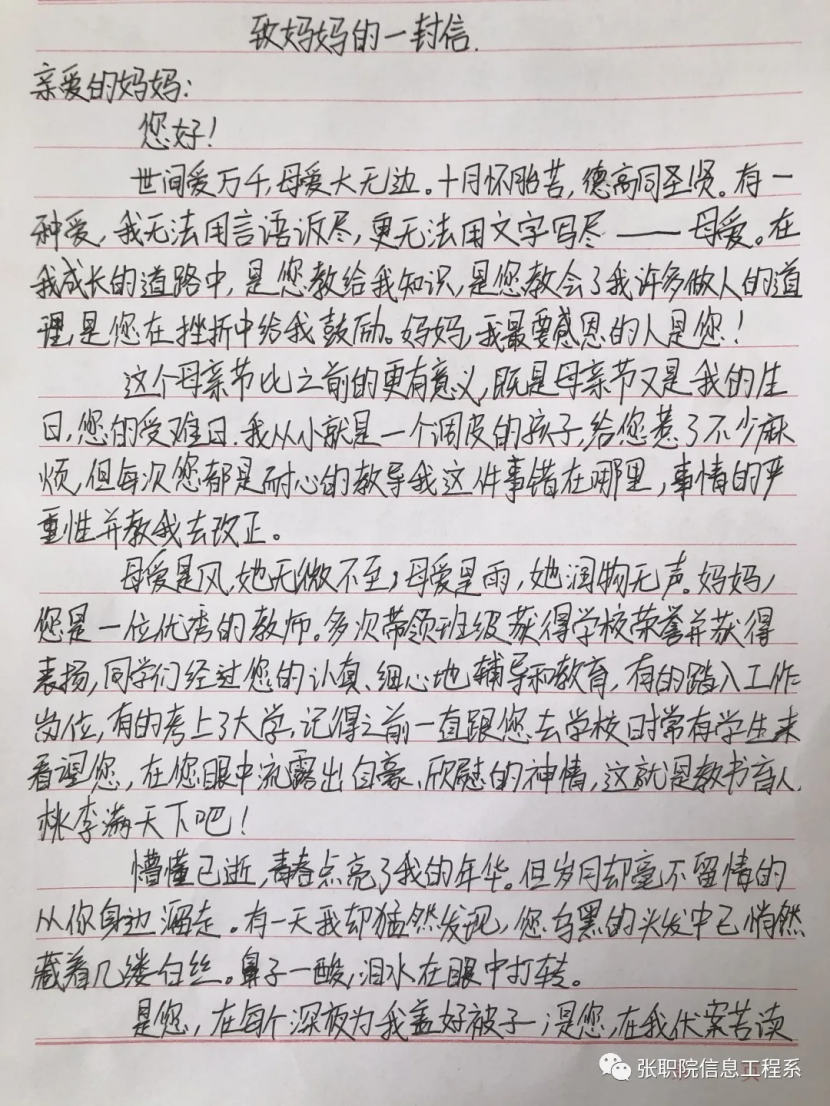 致妈妈的一封信.
亲爱的妈妈:
您好!
世间爱万千,母爱大无边。十月怀胎苦,德高同圣贤。有一
种爱,我无法用言语诉尽,更无法用文字写尽——母爱。在
我成长的道路中,是您教给我知识,是您教会了我许多做人的道
理,是您在挫折中给我鼓励。妈妈,我最要感恩的人是您!
这个母亲节比之前的更有意义,既是母亲节又是我的生
日,您的受难日.我从小就是一个调皮的孩子,给您惹了不少麻
烦,但每次您都是耐心的教导我这件事错在哪里,事情的严
重性并教我去改正。
母爱是风,她无微不至;母爱是雨,她润物无声.妈妈,
您是一位优秀的教师。多次带领班级获得学校荣誉并获得
表扬,同学们经过您的认真、细心地辅导和教育,有的踏入工作
岗位,有的考上了大学,记得之前一直跟您去学校时常有学生来
看望您,在您眼中流露出自豪、欣慰的神情,这就是教书育人,
桃李满天下吧!
懵懂已逝,青春点亮了我的年华。但岁月却毫不留情的
从你身边溜走。有一天我却猛然发现,您乌黑的头发中已悄然
藏着几缕白丝。鼻子一酸,泪水在眼中打转。
是您,在每个深夜为我盖好被子;是您,在我伏案苦读
张职院信息工程系
页